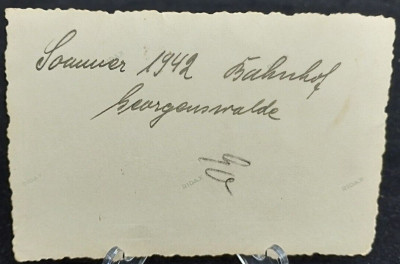 Sommer 1942 Bahnhof
Georgenswalde